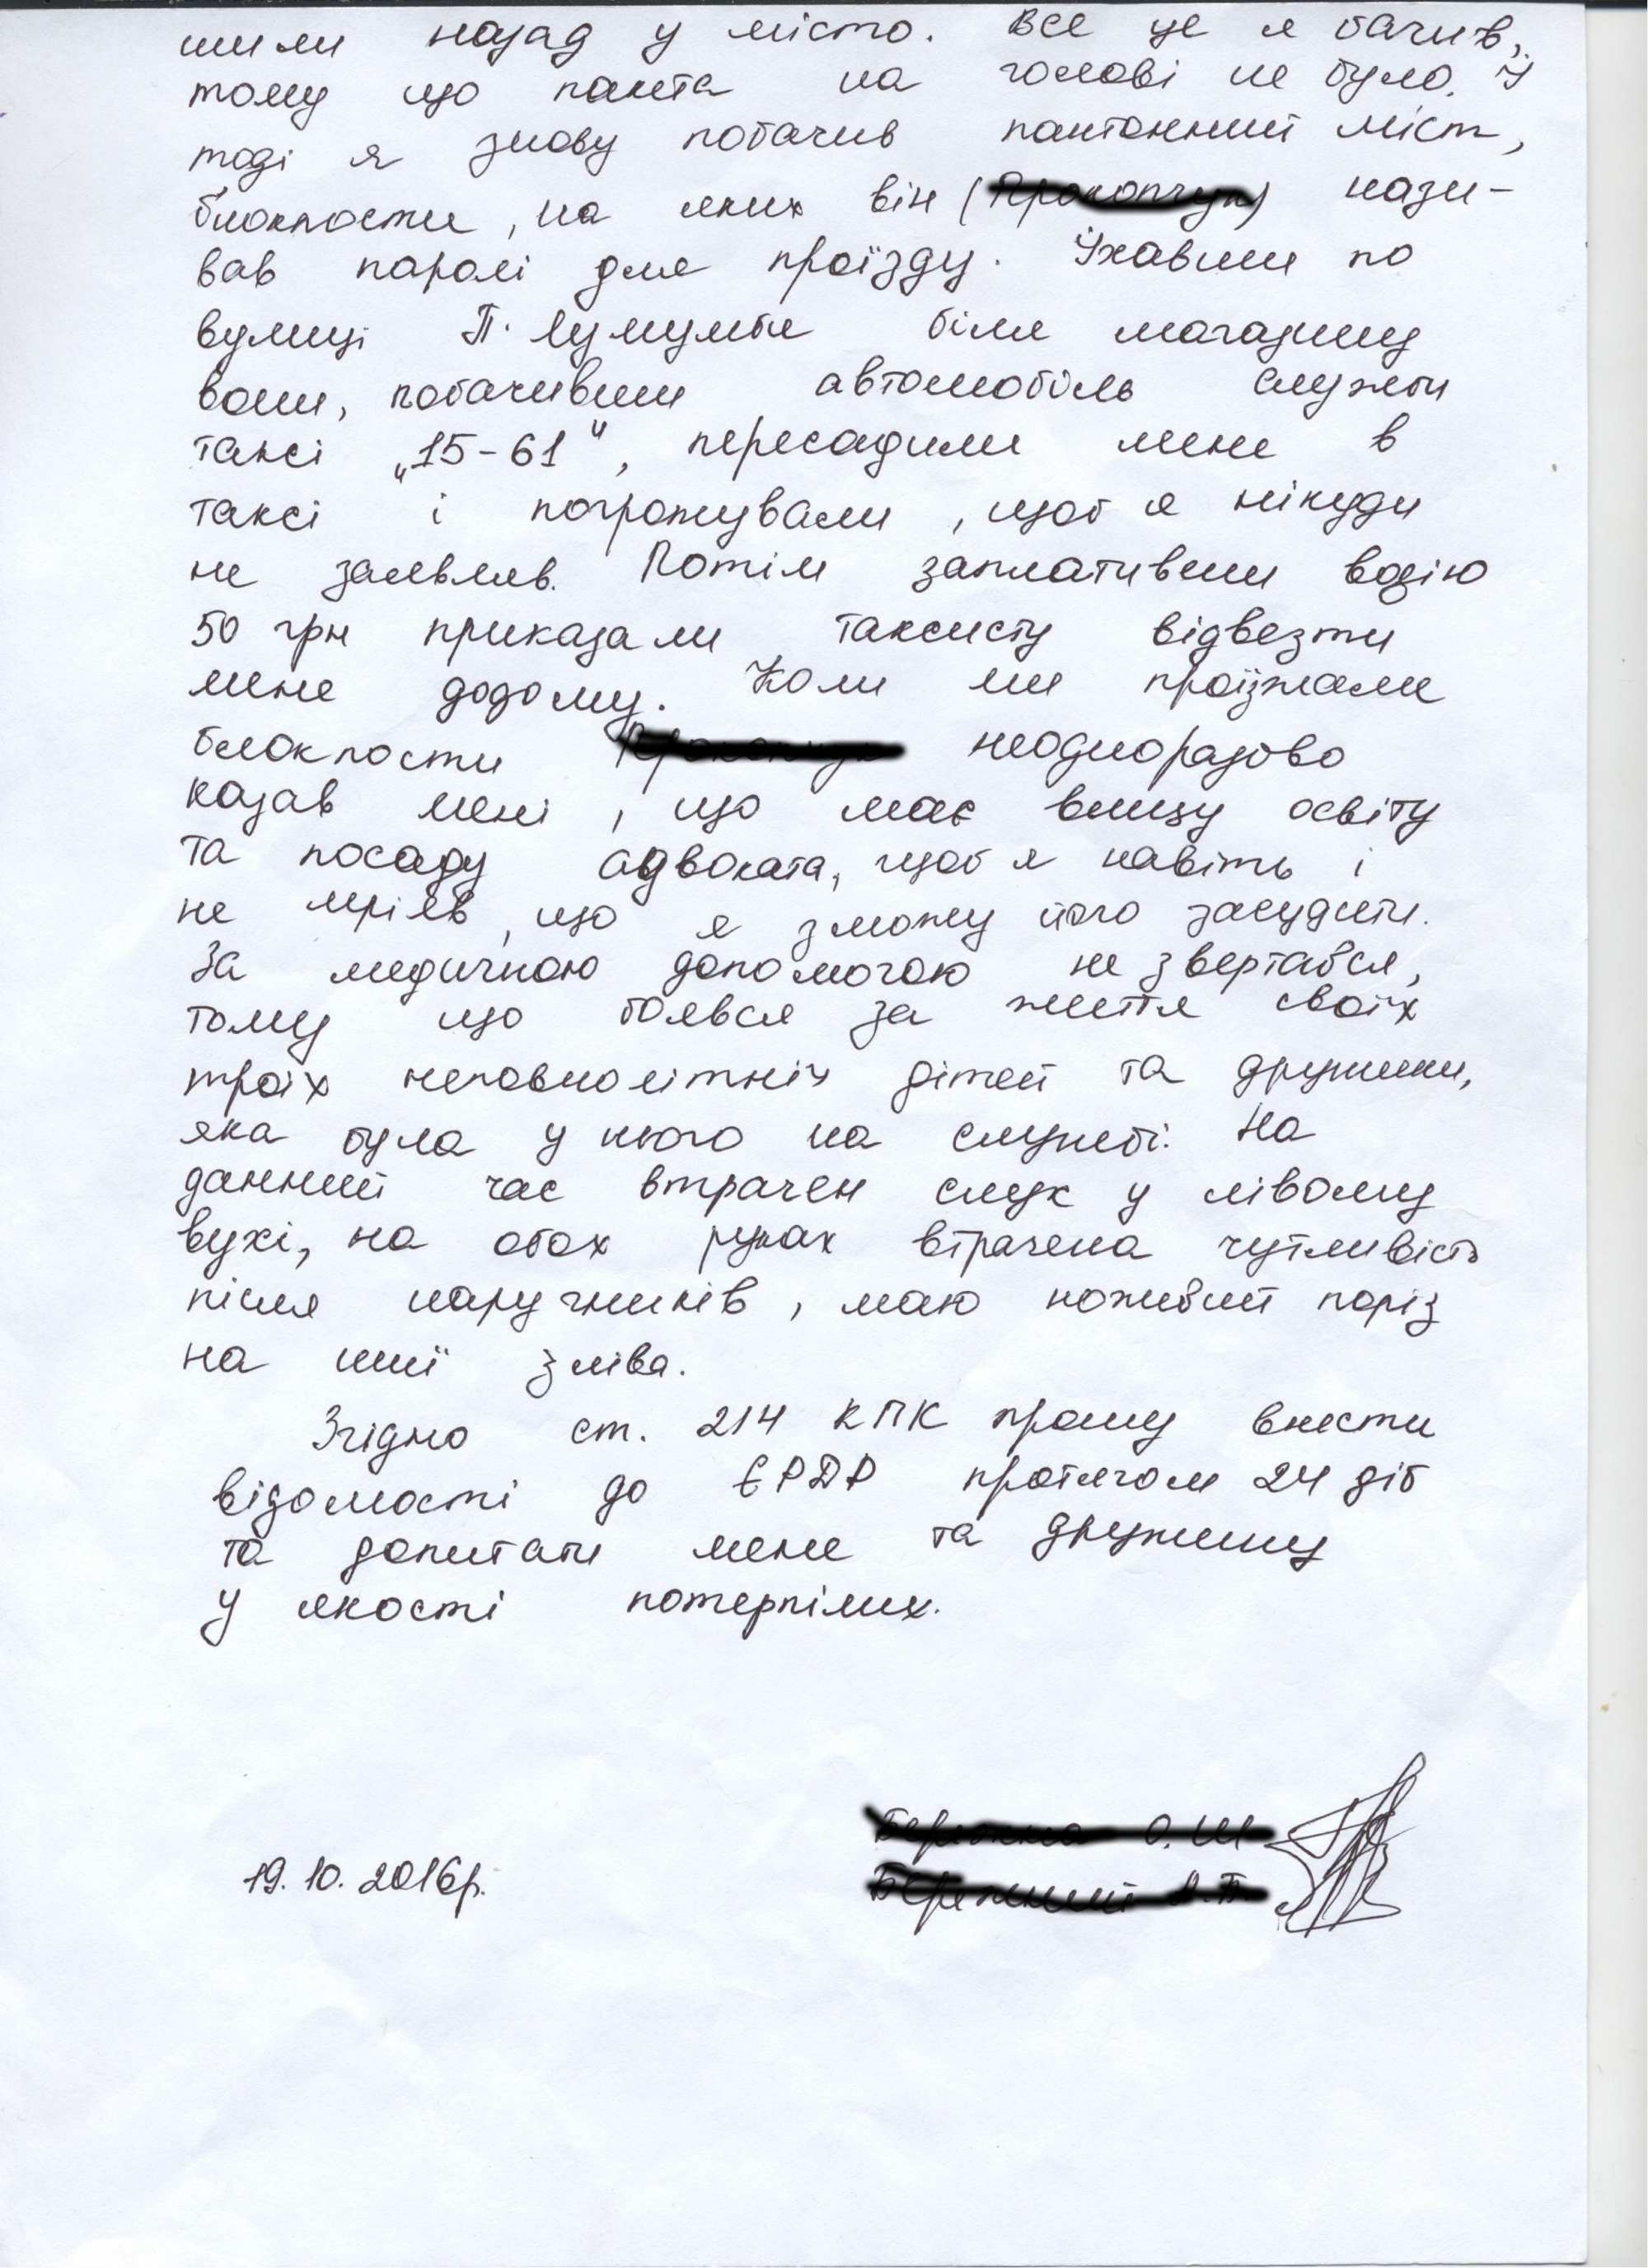 шили назад у місто. Все це я бачив,
тому що пакета на голові не було. Й
тоді я знову побачив пантонний міст,
блокпости, на яких він ( ) нази-
вав паролі для проїзду. Їхавши по
вулиці П. Лумумби біля магазину
вони, побачивши автомобіль служби
таксі „15-61", пересадили мене в
таксі і погрожували, щоб я нікуди
не заявляв. Потім заплативши водію
50 грн приказали таксисту відвезти
мене додому. Коли ми проїзжали
блокпости неодноразово
казав мені, що має вищу освіту
та посаду адвоката, щоб я навіть і
не мріяв, що я зможу його засудити.
За медичною допомогою не звертався,
тому що боявся за життя своїх
троїх неповнолітніх дітей та дружини,
яка була у нього на службі. На
данний час втрачен слух у лівому
вухі, на обох руках втрачена чутливість
після наручників, маю ножевий поріз
на шиї зліва.
Згідно ст. 214 КПК прошу внести
відомості до ЄРДР протягом 24 діб
та допитати мене та дружину
у якості потерпілих.
19.10.2016р.